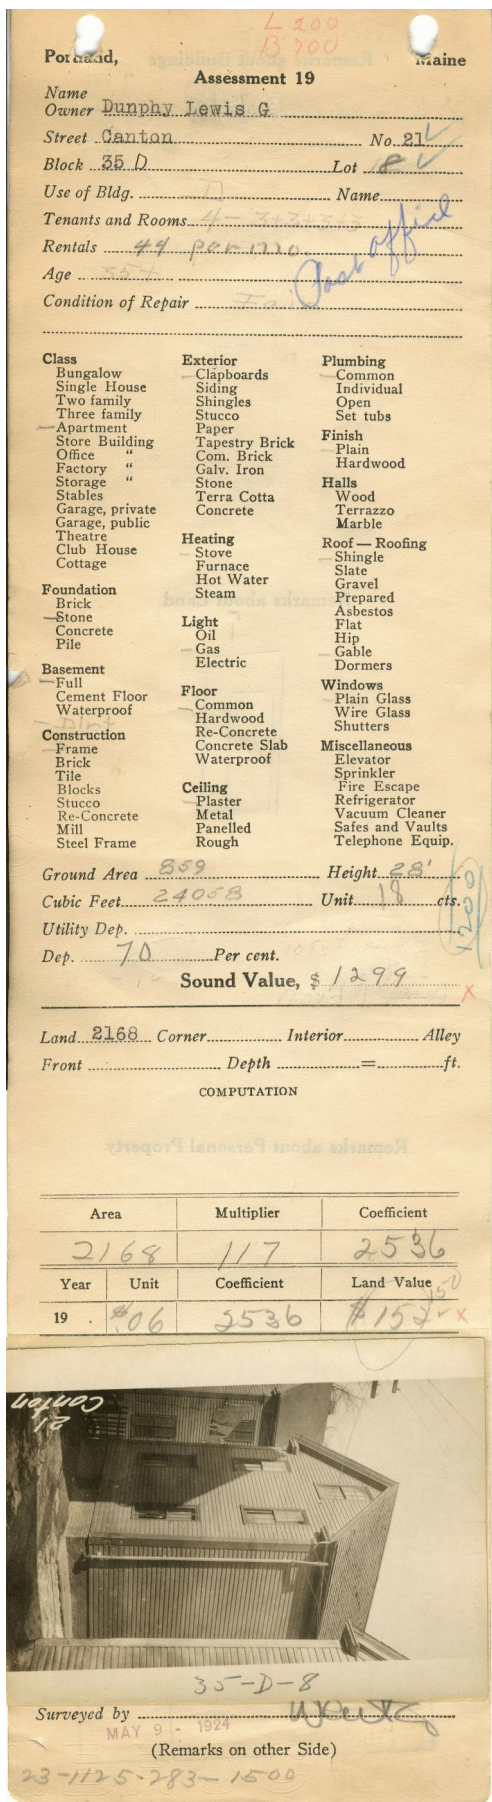 L 200
B 700
Portland, Maine
Assessment 19
Name
Owner Dunphy Lewis G
Street Canton No. 21
Block 35 D Lot 8
Use of Bldg. Name
Tenants and Rooms 4 - 3+3+3+3
Rentals 44 per mo.
Post office
Age 35+
Condition of Repair Fair
Class
Bungalow
Single House
Two family
Three family
Apartment
Store Building
Office "
Factory "
Storage "
Stables
Garage, private
Garage, public
Theatre
Club House
Cottage
Foundation
Brick
Stone
Concrete
Pile
Basement
Full
Cement Floor
Waterproof
Dirt
Construction
Frame
Brick
Tile
Blocks
Stucco
Re-Concrete
Mill
Steel Frame
Exterior
Clapboards
Siding
Shingles
Stucco
Paper
Tapestry Brick
Com. Brick
Galv. Iron
Stone
Terra Cotta
Concrete
Heating
Stove
Furnace
Hot Water
Steam
Light
Oil
Gas
Electric
Floor
Common
Hardwood
Re-Concrete
Concrete Slab
Waterproof
Ceiling
Plaster
Metal
Panelled
Rough
Plumbing
Common
Individual
Open
Set tubs
Finish
Plain
Hardwood
Halls
Wood
Terrazzo
Marble
Roof — Roofing
Shingle
Slate
Gravel
Prepared
Asbestos
Flat
Hip
Gable
Dormers
Windows
Plain Glass
Wire Glass
Shutters
Miscellaneous
Elevator
Sprinkler
Fire Escape
Refrigerator
Vacuum Cleaner
Safes and Vaults
Telephone Equip.
Ground Area 859 Height 28'
Cubic Feet 24058 Unit 18 cts.
1200
Utility Dep.
Dep. 70 Per cent.
Sound Value, $ 1299
x
Land 2168 Corner Interior Alley
Front Depth = ft.
COMPUTATION
Area Multiplier Coefficient
2168 117 2536
Year Unit Coefficient Land Value
150
19 . $.06 2536 $152 x
21
Canton
35-D-8
Surveyed by
MAY 9 - 1924
(Remarks on other Side)
23-1125-283-1500